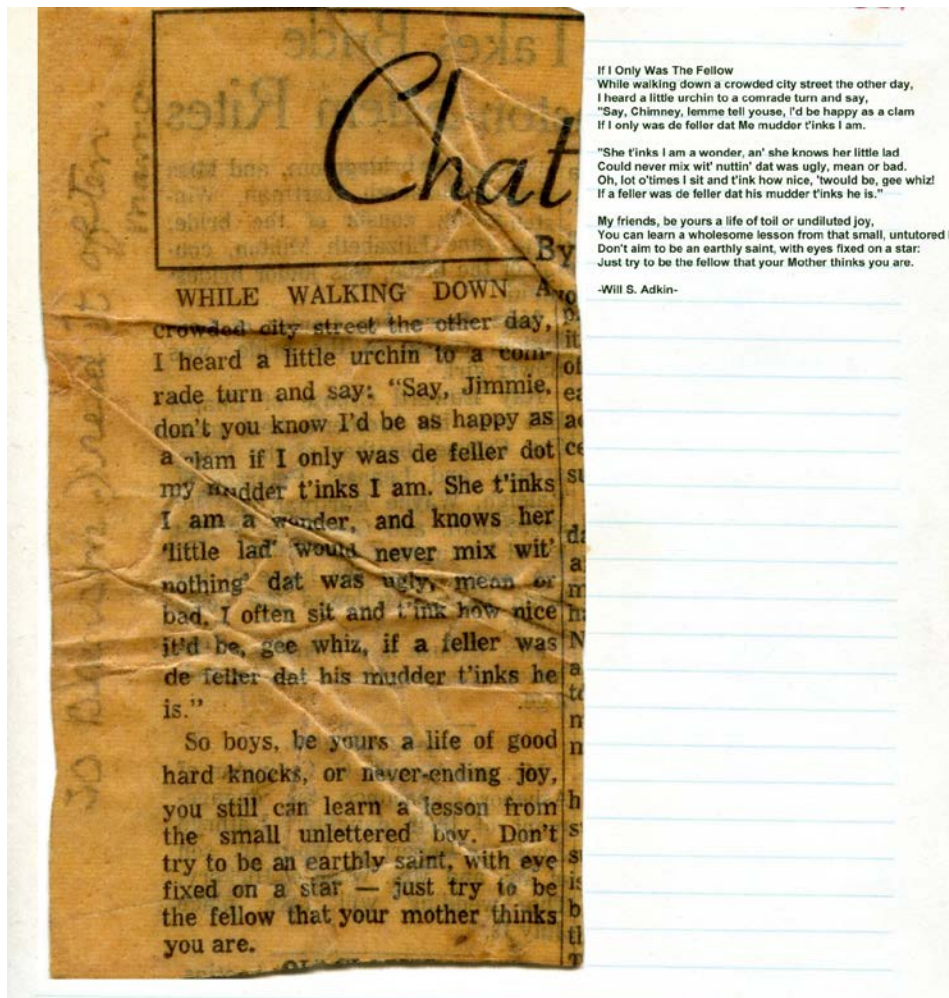 Chat
By
WHILE WALKING DOWN A
crowded city street the other day,
I heard a little urchin to a com-
rade turn and say: “Say, Jimmie,
don't you know I'd be as happy as
a clam if I only was de feller dot
my mudder t'inks I am. She t'inks
I am a wonder, and knows her
'little lad' would never mix wit'
nothing' dat was ugly, mean or
bad. I often sit and t'ink how nice
it'd be, gee whiz, if a feller was
de feller dat his mudder t'inks he
is.”
So boys, be yours a life of good
hard knocks, or never-ending joy,
you still can learn a lesson from
the small unlettered boy. Don't
try to be an earthly saint, with eye
fixed on a star — just try to be
the fellow that your mother thinks
you are.
read it often
Mama
If I Only Was The Fellow
While walking down a crowded city street the other day,
I heard a little urchin to a comrade turn and say,
"Say, Chimney, lemme tell youse, I'd be happy as a clam
If I only was de feller dat Me mudder t'inks I am.
"She t'inks I am a wonder, an' she knows her little lad
Could never mix wit' nuttin' dat was ugly, mean or bad.
Oh, lot o'times I sit and t'ink how nice, 'twould be, gee whiz!
If a feller was de feller dat his mudder t'inks he is."
My friends, be yours a life of toil or undiluted joy,
You can learn a wholesome lesson from that small, untutored
Don't aim to be an earthly saint, with eyes fixed on a star:
Just try to be the fellow that your Mother thinks you are.
-Will S. Adkin-